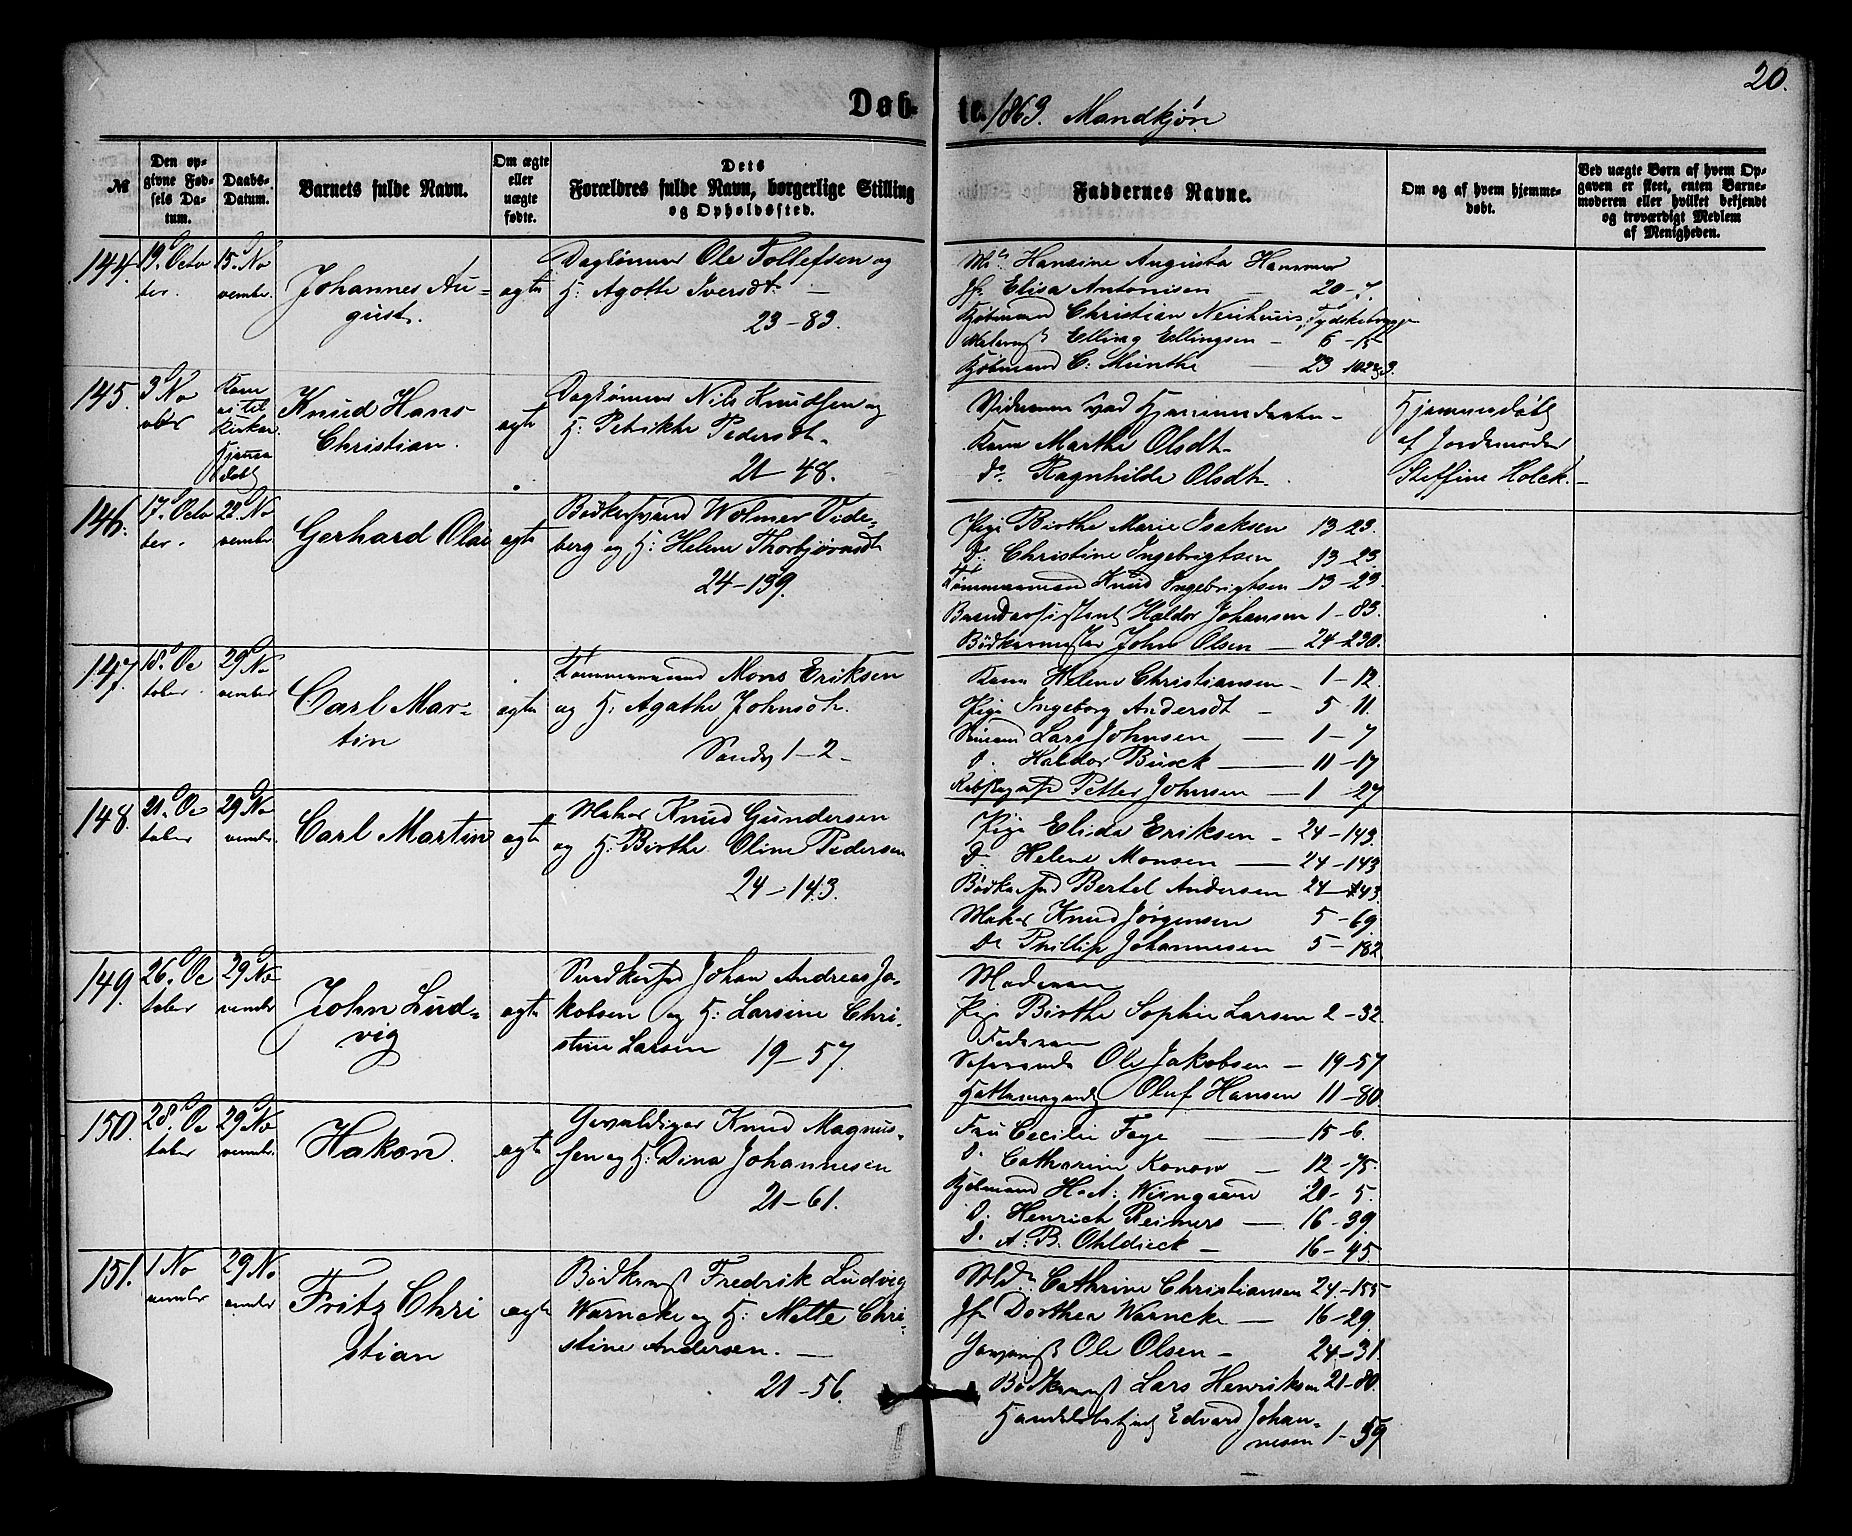 20.
Døb- te. 1863. Mandkjøn
№
Den op-
givne Fød-
sels Da-
tum.
Daabs-
Datum.
Barnets fulde Navn.
Om ægte
eller
uægte
fødte.
Dets
Forældres fulde Navn, borgerlige Stilling
og Opholdssted.
Faddernes Navne.
Om og af hvem hjemme-
døbt.
Ved uægte Børn af hvem Op-
gaven er skeet, enten Barne-
moderen eller hvilket bekjendt
og troværdigt Medlem
af Menigheden.
144.
19. Octo
ber.
15. No
vember.
Johannes Au-
gust.
ægte
Dagtømmer Ole Tollefsen og
H: Agothe Iversdt: —
23-83.
Hansine Augusta Hammer
Jfr Elisa Antonisen — 20-7.
Kjøbmand Christian Neuhuus, Tydskebryggen
Elling Ellingsen — 6-15
Kjøbmand C. Münthe — 23
145.
3 No
vbr
Kom
ei til
Kirken.
Hjemme
døbt
Knud Hans
Christian.
ægte
Nils Knudsen og
H: Petrikke Pedersdt.
21-48.
Vidnerne ved Hjemmedaaben —
Kone Marthe Olsdt.
Do. Ragnhilde Olsdt.
Hjemmedøbt
af Jordemoder
Steffine Holck.
146.
17. Octo
ber.
22. No
vember.
Gerhard Olai
ægte
Bødkersvend Wolmer Vide-
berg og H: Helene Thorbjørnsdt
24-139.
Pige Birthe Marie Isaksen 13-23.
D. Christine Ingebrigtsen 13-23.
Tømmermand Knud Ingebrigtsen 13-23.
Haldor Johansen 1-83.
Bødkermester John Olsen — 24-230.
147.
18. Oc
tober.
29 No
vember
Carl Mar-
tin
ægte
Tømmermand Mons Eriksen
og H: Agathe Johnsdt.
Sandv 1-2-
Kone Helene Christiansen — 1-12.
Pige Ingeborg Andersdt — 5-11.
Lars Johnsen — 1-7
D. Haldor Busck — 11-17
Petter Johnsen — 1-27
148.
21. Oc
tober
29 No
vember.
Carl Martin
ægte
Knud Gundersen
og H: Birthe Oline Pedersen
24-143.
Pige Elida Eriksen — 24-143.
D. Helene Monsen — 24-143
Bødkersvd Bertel Andersen 24-143.
Knud Jørgensen 5-69.
Do Phillip Johannesen 5-182
149.
26. Oc
tober
29 No
vember
John Lud-
vig
ægte
Snedkersvd Johan Andreas Ja-
kobsen og H: Larsine Chri-
stine Larsen 19-57.
Moderen
Pige Birthe Sophie Larsen 2-32.
Faderen
Ole Jakobsen — 19-57
Oluf Hansen 11-80.
150.
28. Oc
tober
29 No
vember.
Hakon.
ægte
Gevaldiger Knud Magnus-
sen og H: Dina Johannesen
21-61.
Fru Cecilie Faye — 15-6.
D. Catharine Konow — 12-75.
Kjøbmand H. A: Wisngaard 20-5.
D. Henrich Reimers — 16-39.
D. A. B. Ohldieck — 16-45.
151.
1 No
vember
29 No
vember
Fritz Chri
stian
ægte
Fredrik Ludvig
Warncke og H: Mette Chri-
stine Andersen. —
21-56.
Cathrine Christiansen 24-155
Jfr Dorthea Warncke — 16-29.
Ole Olsen — 24-31.
Lars Henriksen 21-80.
Edvard Johan-
nesen 1-59